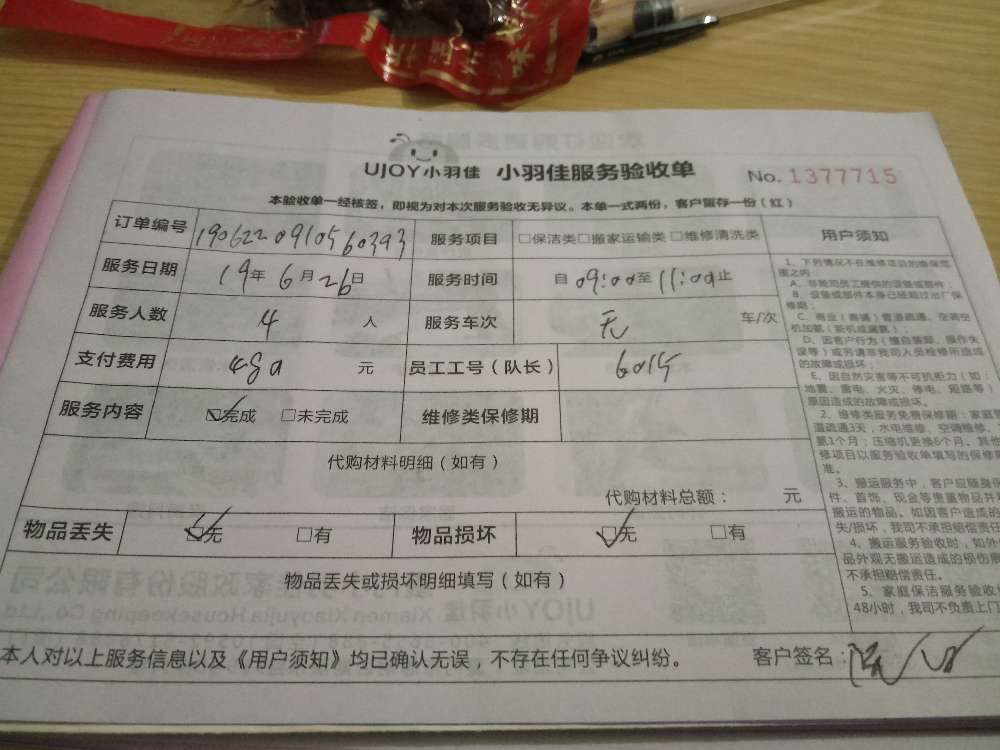 味
UJOY小羽佳 小羽佳服务验收单 No. 1377715
本验收单一经核签，即视为对本次服务验收无异议。本单一式两份，客户留存一份（红）
订单编号 190622091056 0393 服务项目 □保洁类□搬家运输类□维修清洗类 用户须知
服务日期 19年 6月26日 服务时间 自09:00至11:00止
服务人数 4 人 服务车次 无 车/次
支付费用 480 元 员工工号（队长） 6015
服务内容 ☑完成 □未完成 维修类保修期
代购材料明细（如有）
代购材料总额： 元
物品丢失 ☑无 □有 物品损坏 ☑无 □有
物品丢失或损坏明细填写（如有）
1、下列情况不在维修项目的维保范
围之内
A、非我司员工提供的设备或部件；
B、设备或部件本身已经超过出厂保
修期；
C、商业（商铺）管道疏通、空调空
机加氟（新机或漏氟）；
D、因客户行为（擅自装卸、操作失
误等）或另请非我司人员检修所造成
的故障或损坏；
E、因自然灾害等不可抗拒力（如：
地震、雷电、火灾、停电、短路等）
原因造成的故障或损坏。
2、维修类服务免费保修期：家庭管
道疏通3天；水电维修、空调维修、
氟1个月；压缩机更换6个月。其他
修项目以服务验收单填写的保修期
准。
3、搬运服务中，客户应随身保
件、首饰、现金等贵重物品并
搬运的物品。如因客户造成的
失/损坏，我司不承担赔偿责任
4、搬运服务验收时，如外
品外观无搬运造成的损伤
不承担赔偿责任。
5、家庭保洁服务验收
48小时，我司不负责上门
本人对以上服务信息以及《用户须知》均已确认无误，不存在任何争议纠纷。 客户签名：